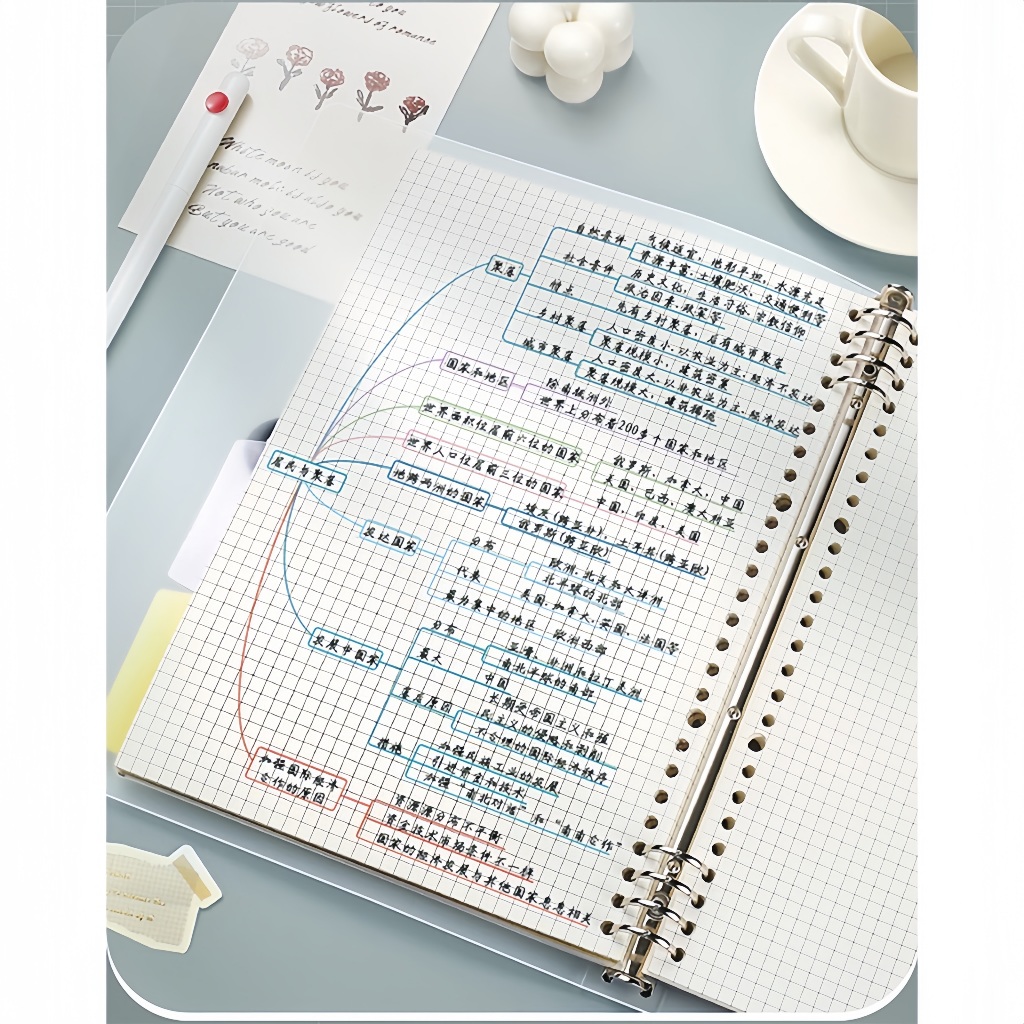 to you
flowers of romance
Waste moon is you
Not who you are
But you are good
居民与聚落
聚落
自然条件
气候适宜、地形平坦、水源充足
资源丰富、土壤肥沃、交通便利等
社会条件
历史文化、生活习俗、宗教信仰
政治因素、政策等
特点
先有乡村聚落，后有城市聚落
乡村聚落
人口密度小，以农业为主，经济不发达
聚落规模小，建筑密集
城市聚落
人口密度大，以非农业为主，经济发达
聚落规模大，建筑稀疏
国家和地区
除南极洲外
世界上分布着200多个国家和地区
世界面积位居前六位的国家
俄罗斯、加拿大、中国
美国、巴西、澳大利亚
世界人口位居前三位的国家
中国、印度、美国
地跨两洲的国家
埃及(跨亚非)、土耳其(跨亚欧)
俄罗斯(跨亚欧)
发达国家
分布
欧洲、北美和大洋洲
北半球的北部
代表
美国、加拿大、英国、法国等
最为集中的地区
欧洲西部
发展中国家
分布
亚洲、非洲和拉丁美洲
南北半球的南部
最大
中国
落后原因
长期受帝国主义和殖
民主义的侵略和剥削
不合理的国际经济秩序
措施
加强民族工业的发展
引进资金和技术
加强“南北对话”和“南南合作”
加强国际经济
合作的原因
资源源分布不平衡
资金技术市场条件不一样
国家的经济发展与其他国家息息相关